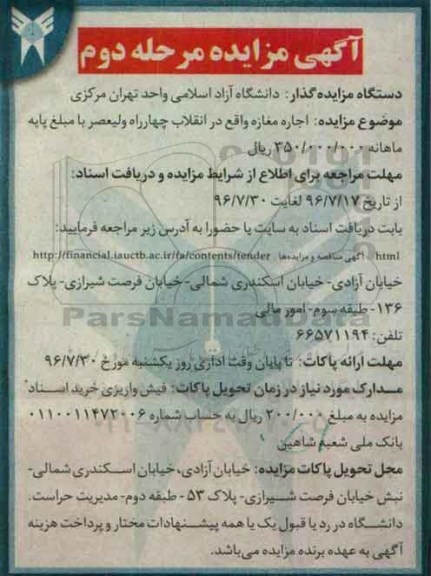 آگهی مزایده مرحله دوم
دستگاه مزایده‌گذار: دانشگاه آزاد اسلامی واحد تهران مرکزی
موضوع مزایده: اجاره مغازه واقع در انقلاب چهارراه ولیعصر با مبلغ پایه
ماهانه ۳۵۰/۰۰۰/۰۰۰ ریال
مهلت مراجعه برای اطلاع از شرایط مزایده و دریافت اسناد:
از تاریخ ۹۶/۷/۱۷ لغایت ۹۶/۷/۳۰
بابت دریافت اسناد به سایت یا حضورا به آدرس زیر مراجعه فرمایید:
http://financial.iauctb.ac.ir/fa/contents/tender آگهی مناقصه و مزایده‌ها html
خیابان آزادی- خیابان اسکندری شمالی- خیابان فرصت شیرازی- پلاک
۱۳۶- طبقه سوم- امور مالی
ParsNamadData
تلفن: ۶۶۵۷۱۱۹۴
مهلت ارائه پاکات: تا پایان وقت اداری روز یکشنبه مورخ ۹۶/۷/۳۰
مدارک مورد نیاز در زمان تحویل پاکات: فیش واریزی خرید اسناد
مزایده به مبلغ ۲۰۰/۰۰۰ ریال به حساب شماره ۰۱۱۰۰۱۱۴۷۲۰۰۶
بانک ملی شعبه شاهین
محل تحویل پاکات مزایده: خیابان آزادی، خیابان اسکندری شمالی-
نبش خیابان فرصت شیرازی- پلاک ۵۳ - طبقه دوم- مدیریت حراست.
دانشگاه در رد یا قبول یک یا همه پیشنهادات مختار و پرداخت هزینه
آگهی به عهده برنده مزایده می‌باشد.